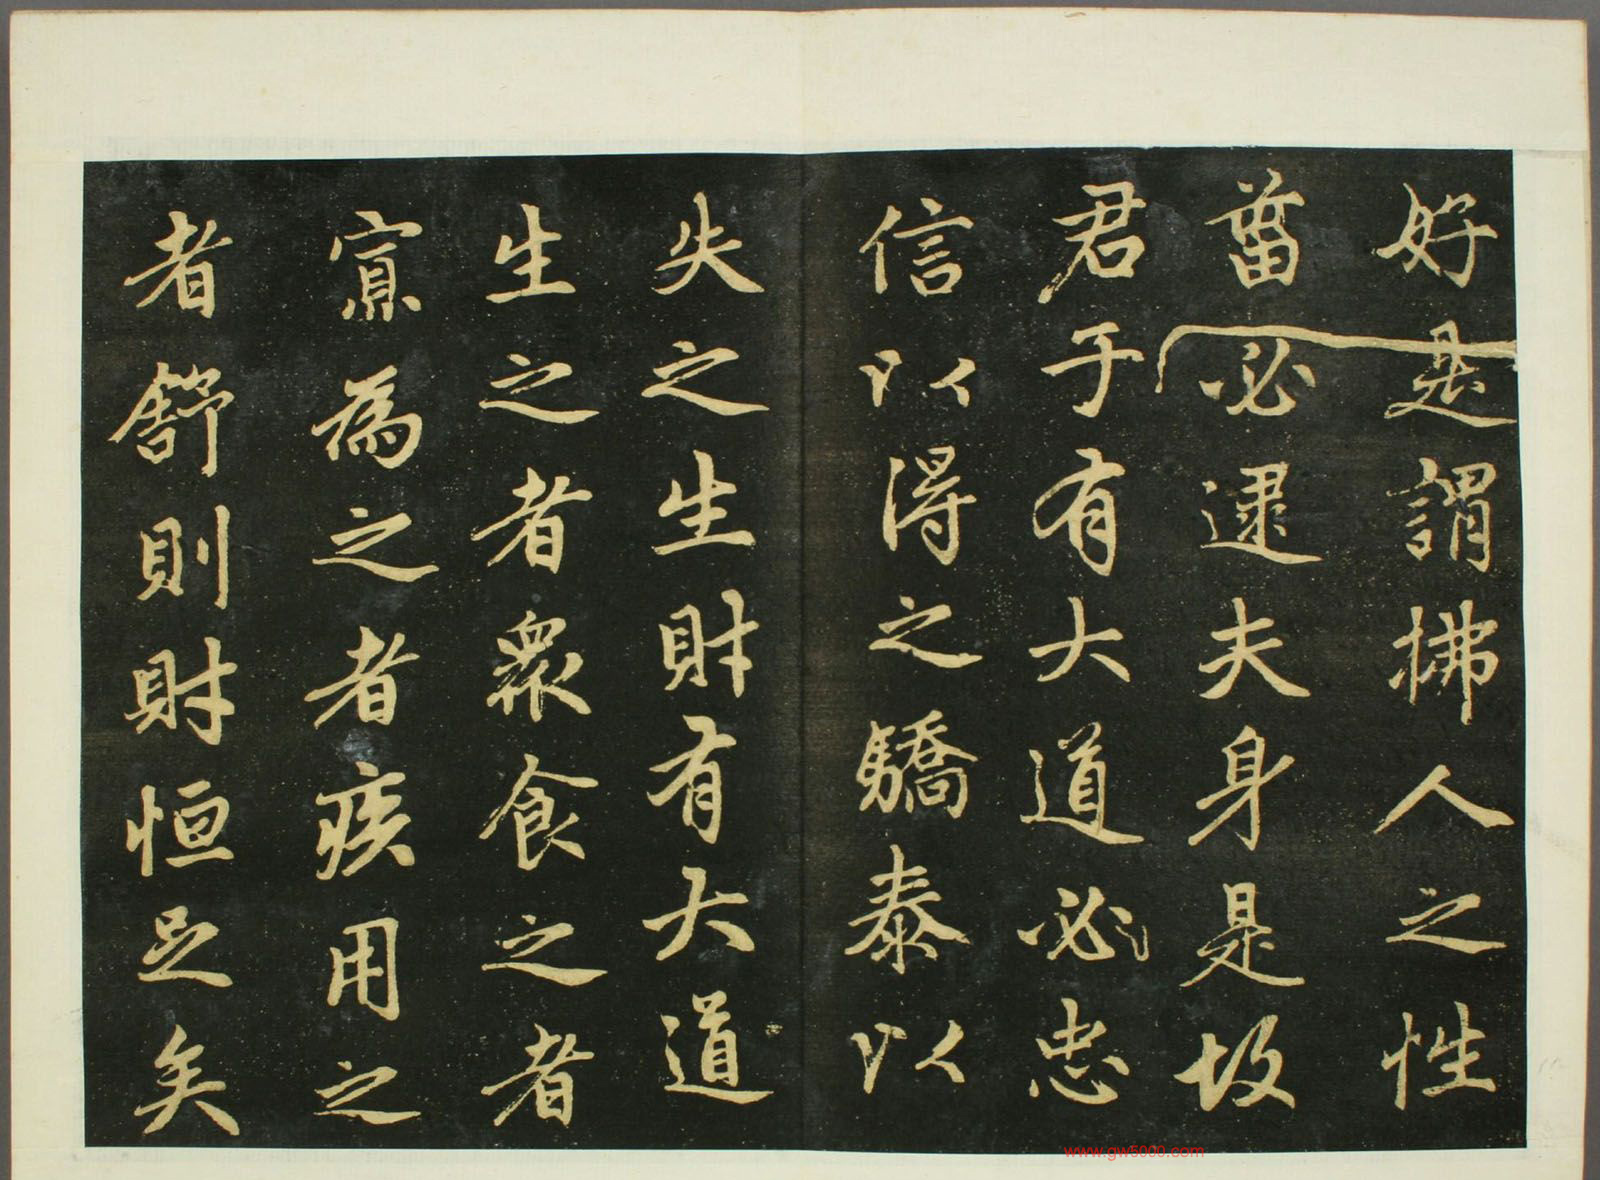 好是謂拂人之性
菑必逮夫身是故
君子有大道必忠
信以得之驕泰以
失之生財有大道
生之者衆食之者
寡為之者疾用之
者舒則財恒足矣
www.gw5000.com